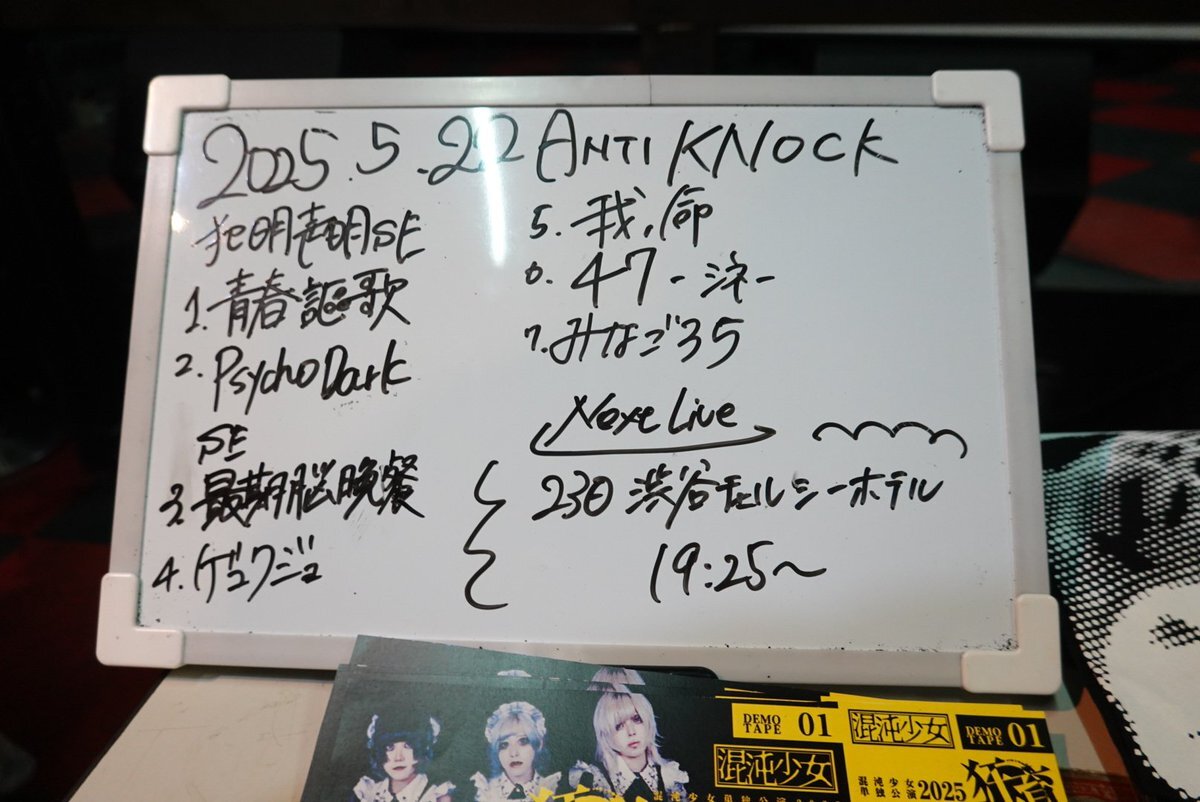 2025.5.22 ANTIKNOCK
SE
1. 青春謳歌
2. PsychoDark
SE
3. 最期脳晩餐
4. ゲユワジュ
5. 我、命
6. 47 -シネ-
7. みなごろち
Next Live
230 渋谷チェルシーホテル
19:25〜
DEMO TAPE 01
混沌少女
混沌少女
DEMO TAPE 01
混沌少女
単独公演 2025